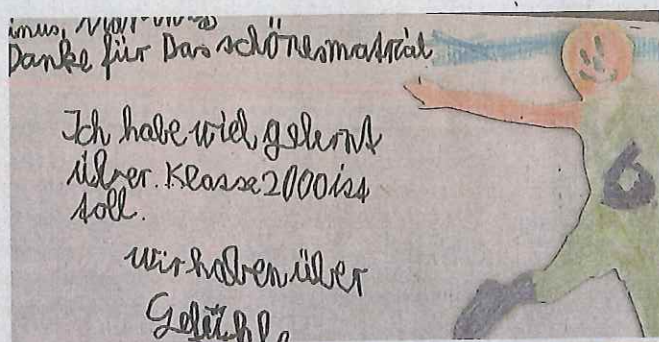 Danke für Das schönesmaterial
Ich habe viel gelernt
über. Klasse2000 ist
toll.
wir haben über
Gefühle
6